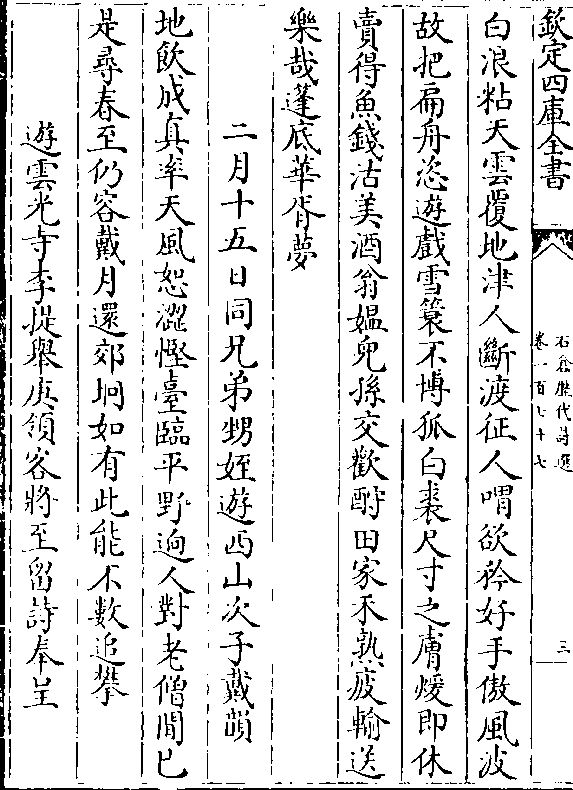 欽定四庫全書
石倉歷代詩選
卷一百七十七
三
白浪粘天雲覆地津人斷渡征人喟欲矜好手傲風波
故把扁舟恣遊戲雪簑不博狐白裘尺寸之膚煖即休
賣得魚錢沽美酒翁媪兒孫交歡酧田家禾熟疲輸送
樂哉蓬底華胥夢
二月十五日同兄弟甥姪遊西山次子戴韻
地飲成真率天風恕澀慳臺臨平野逈人對老僧閒已
是尋春至仍容戴月還郊坰如有此能不數追攀
遊雲光寺李提舉庚領客將至留詩奉呈